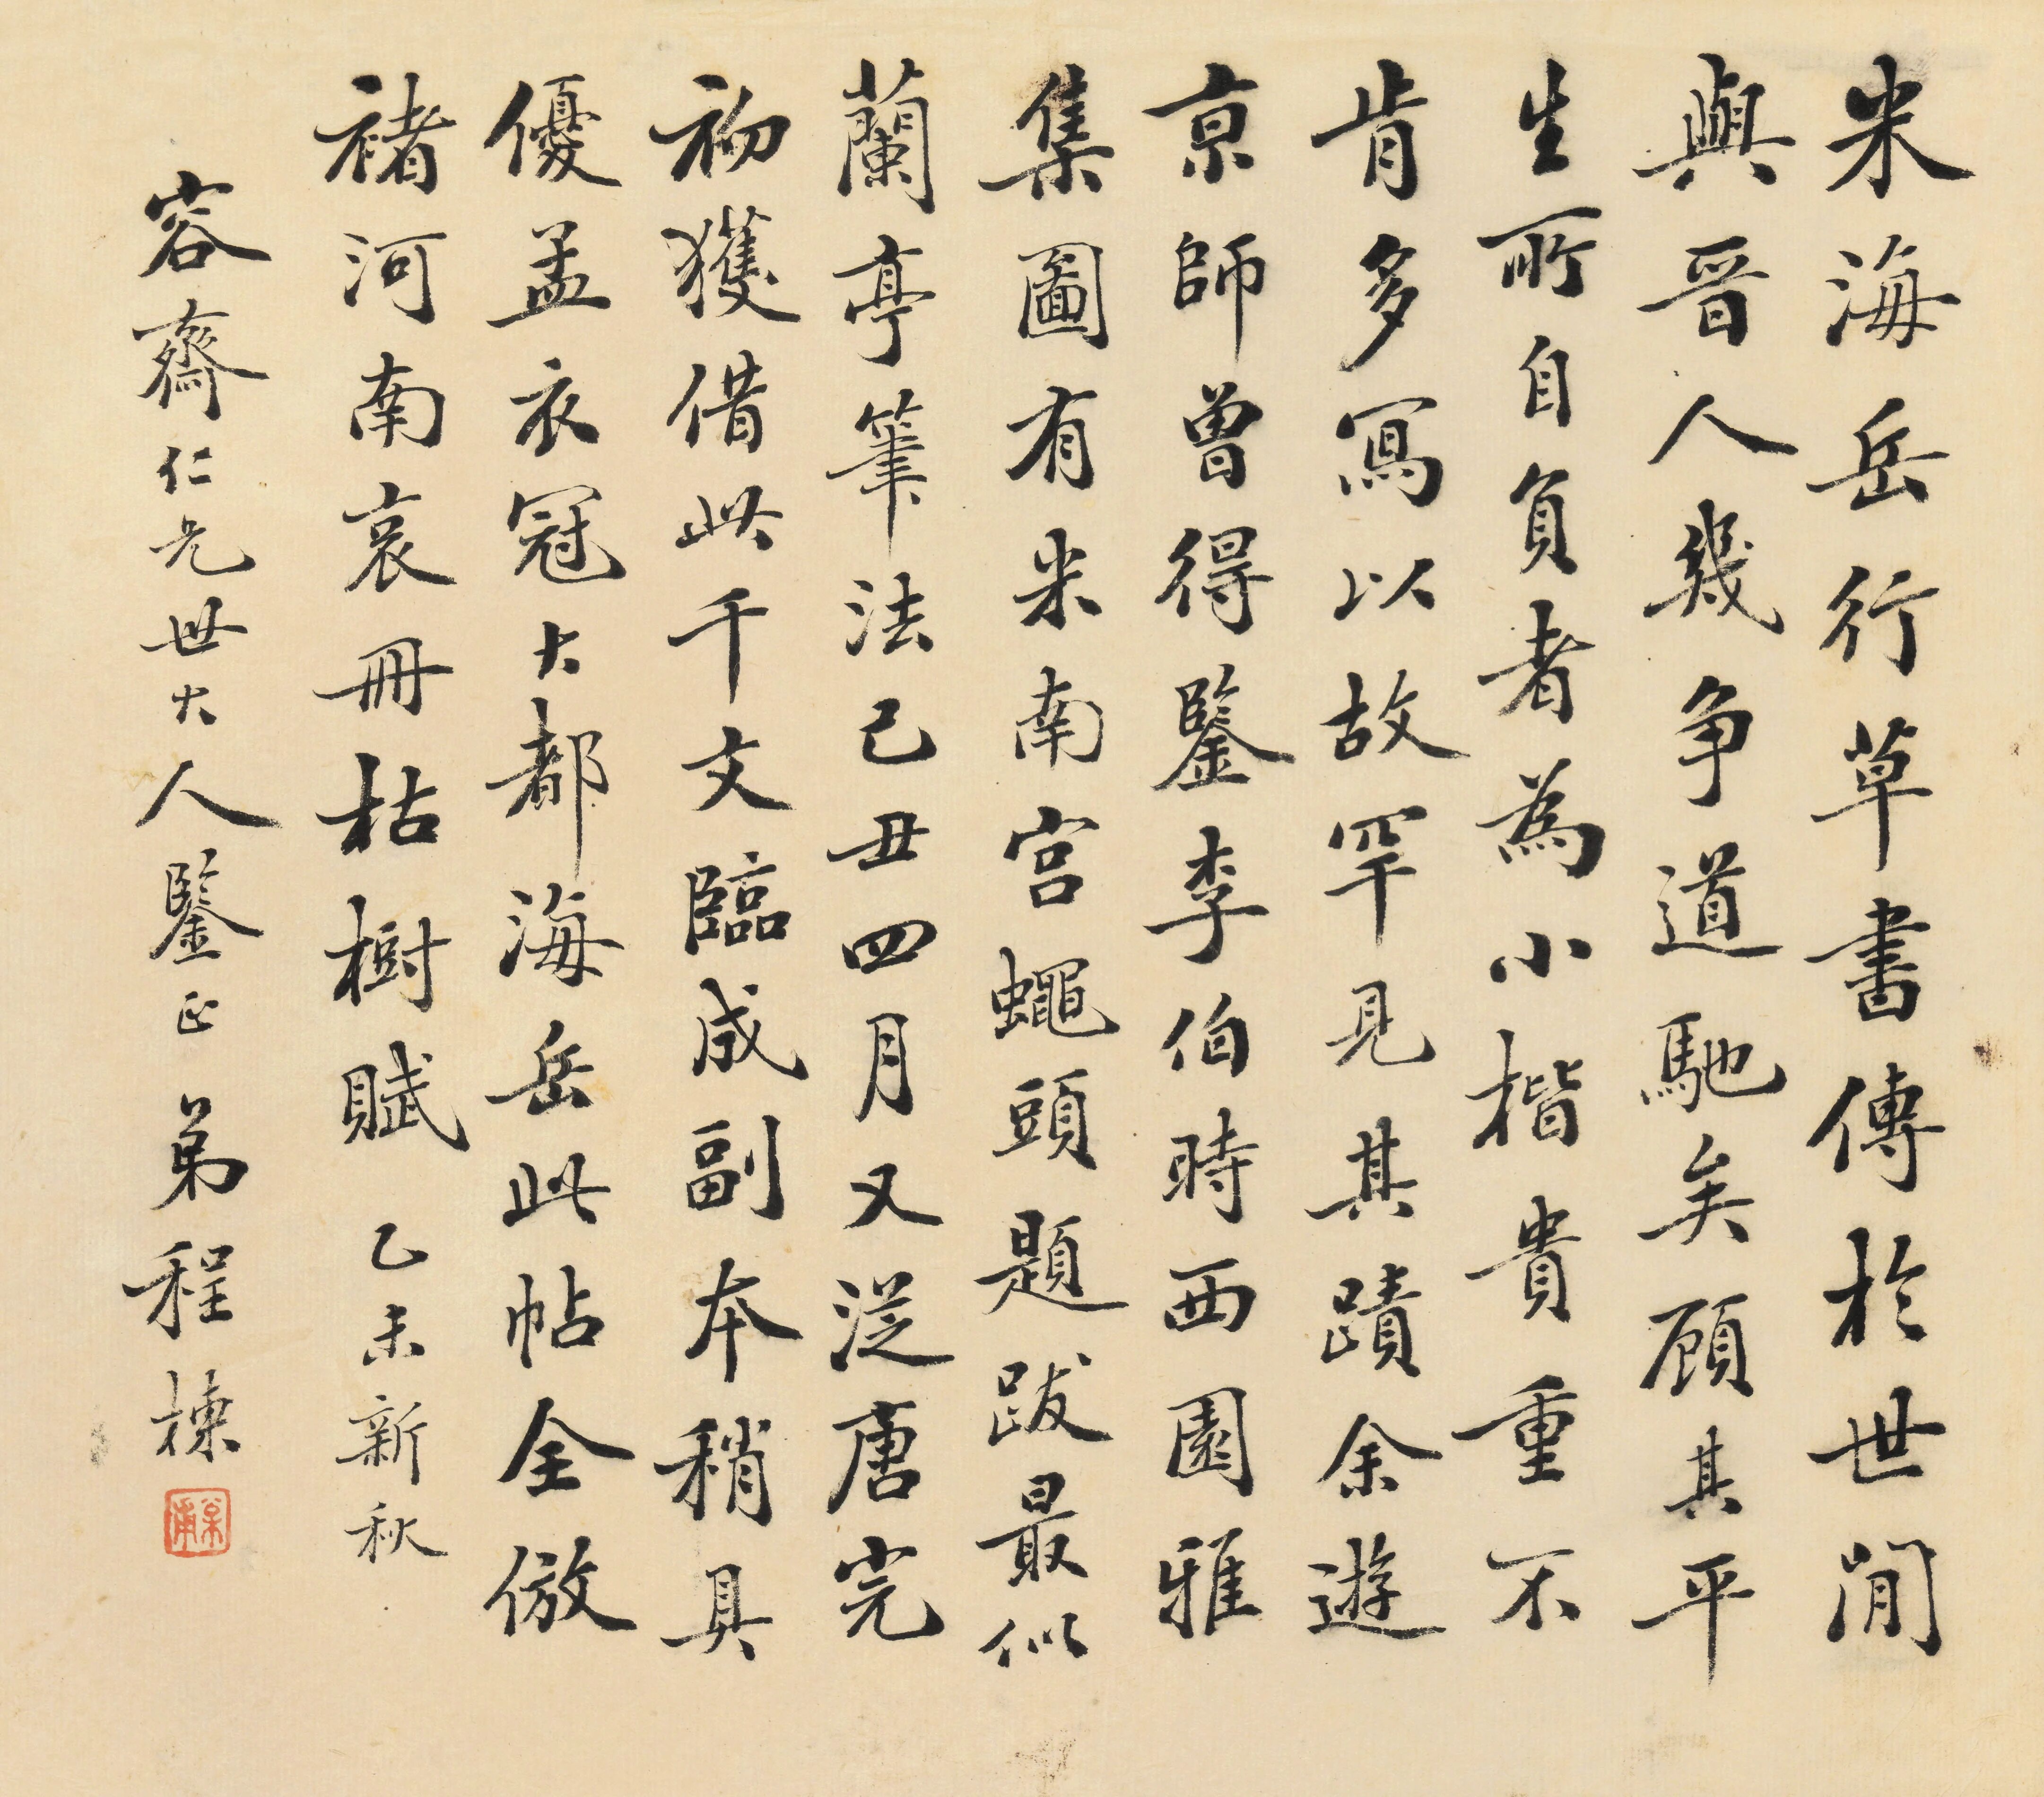 米海岳行草書傳於世間
與晉人幾争道馳矣顧其平
生所自負者為小楷貴重不
肯多寫以故罕見其蹟余遊
京師曾得鑒李伯時西園雅
集圖有米南宮蠅頭題跋最似
蘭亭筆法己丑四月又從唐完
初獲借此千文臨成副本稍具
優孟衣冠大都海岳此帖全倣
褚河南哀冊枯樹賦 乙未新秋
容齋仁兄世大人鑒正 弟程棟